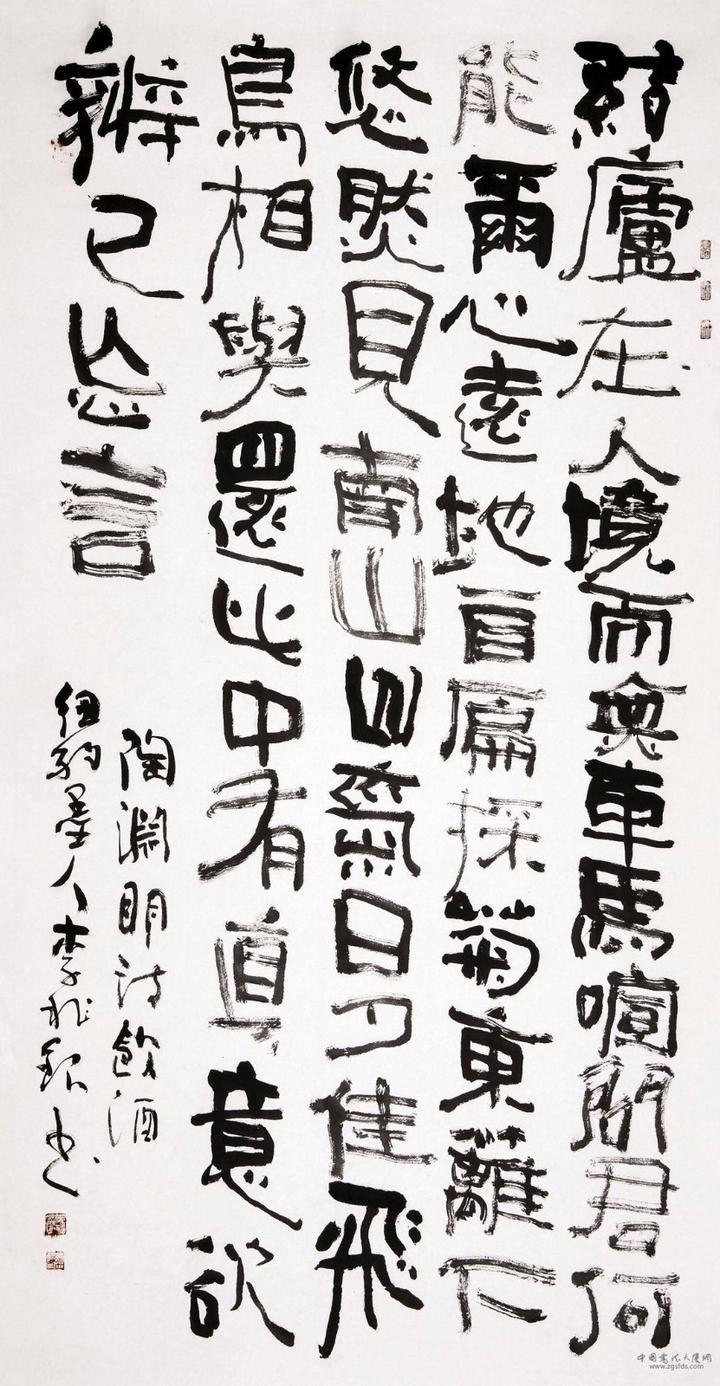 結廬在人境而無車馬喧問君何
能爾心遠地自偏採菊東籬下
悠然見南山山氣日夕佳飛
鳥相與還此中有真意欲
辨已忘言
陶淵明詩飲酒
紐約墨人李兆銀書
中國書法大厦網
www.zgsfds.com